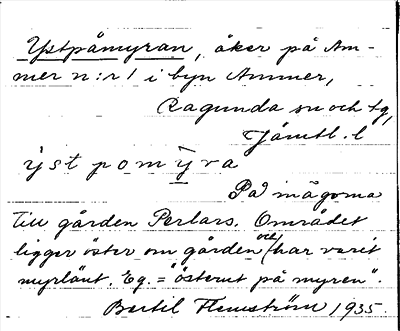 Ystpåmyran, åker på Am-
mer n:r 1 i byn Ammer,
Ragunda sn och tg,
Jämtl. l
ȳst pomȳra
På inägorna
till gården Perlars. Området
ligger öster om gården och har varit
myrlänt. Eg. = "österut på myren".
Bertil Flemström 1935.